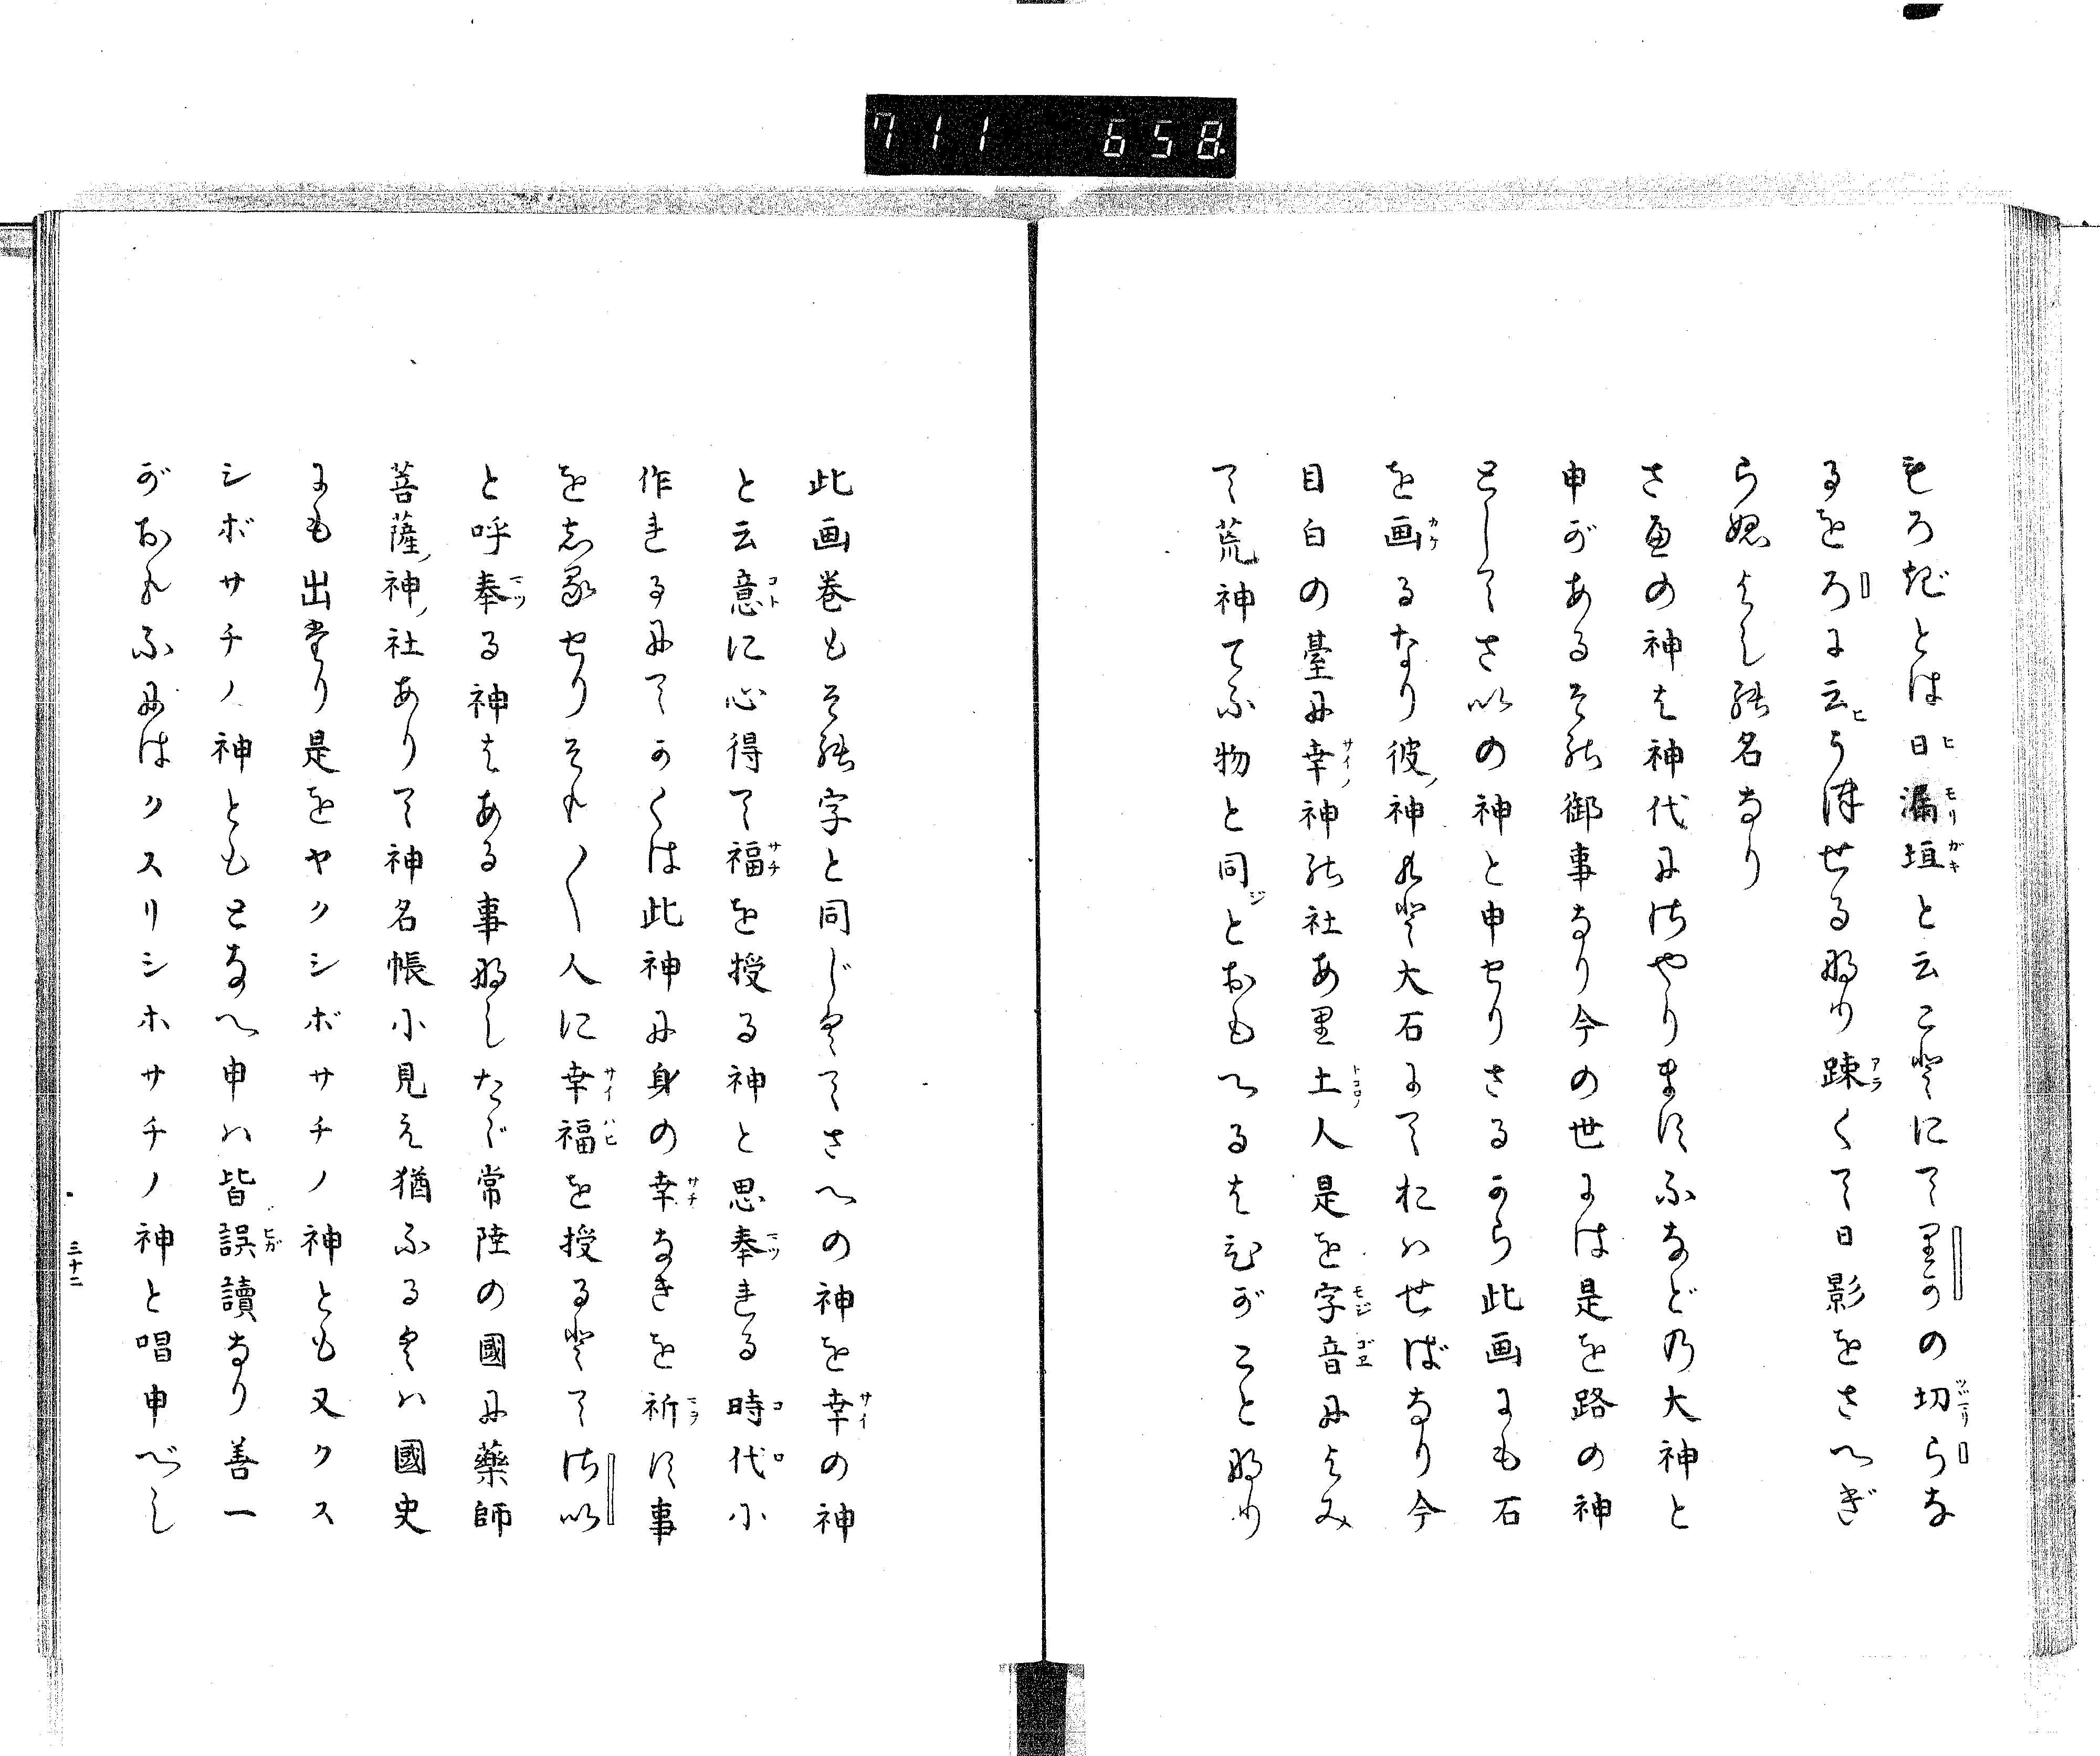 711 658
もろがとは日漏垣と云ことにて里可の切らな
るをろに云うつせる那り疎くて日影をさへぎ
ら怒よし能名なり
さへの神は神代にはやりまけふなどの大神と
申があるその御事なり今の世には是を路の神
としてさいの神と申せりさるから此画にも石
を画るなり彼ノ神のと大石にておはせばなり今
目白の臺に幸ノ神の社あ里土人是を字音によみ
て荒神てふ物と同じとおもへるはひがこと那り
此画巻もその字と同じくてさへの神を幸の神
と云意に心得て福を授る神と思奉れる時代に
作れるにてかくは此神に身の幸なきを祈け事
をしるせりそれ〳〵人に幸福を授るとてはい
と呼奉る神はある事那したゞ常陸の國に藥師
菩薩ノ神ノ社ありて神名帳に見え猶ふるくハ國史
にも出たり是をヤクシボサチノ神とも又クス
シボサチノ神ともとなへ申ハ皆誤讀なり善一
がおもふにはクスリシホサチノ神と唱申べし
三十二